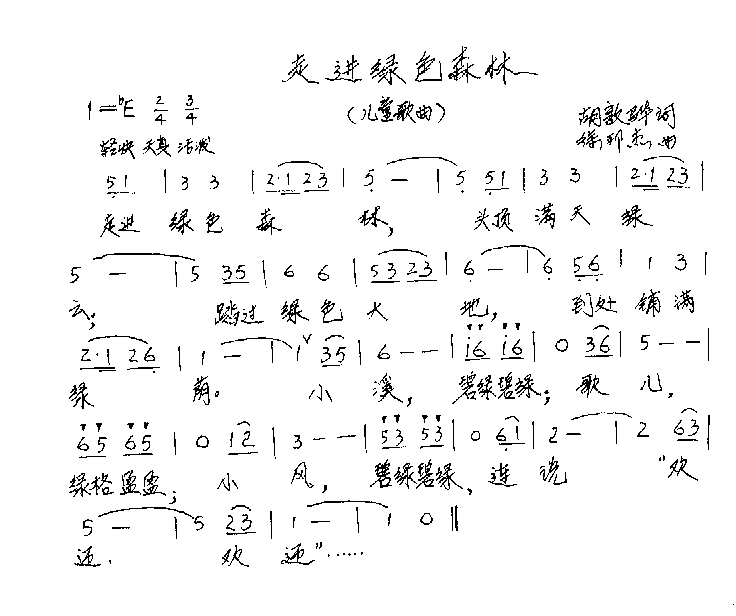 走进绿色森林
1=ᵇE 2/4 3/4 （儿童歌曲） 胡敦骅词
轻快 天真 活泼 徐邦杰曲
5̣1 | 3 3 | 2·1 23 | 5̣ — | 5̣ 5̣1 | 3 3 | 2·1 23 |
走进 绿色 森 林， 头顶 满天 绿
5 — | 5 35 | 6 6 | 53 23 | 6̣ — | 6̣ 5̣6̣ | 1 3 |
云； 踏过 绿色 大 地， 到处 铺满
2·1 26̣ | 1 — | 1 ∨ 35 | 6 - - | i6 i6 | 0 36 | 5 - - |
绿 荫。 小 溪， 碧绿碧绿； 歌 儿，
65 65 | 0 12 | 3 - - | 53 53 | 0 6̣1 | 2 — | 2 63 |
绿格盈盈； 小 风， 碧绿碧绿， 连 说 “欢
5 — | 5 23 | 1 — | 1 0 ‖
迎． 欢 迎”……